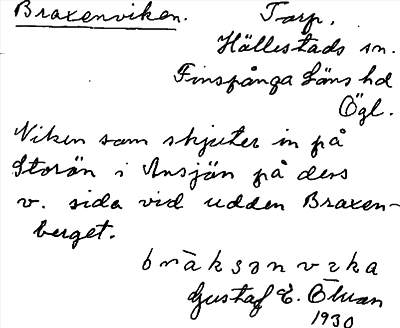 Braxenviken. Torp.
Hällestads sn.
Finspånga läns hd
Ögl.
Viken som skjuter in på
Storön i Ansjön på dess
v. sida vid udden Braxen-
berget.
bràksənvɩka
Gustaf E. Öman
1930